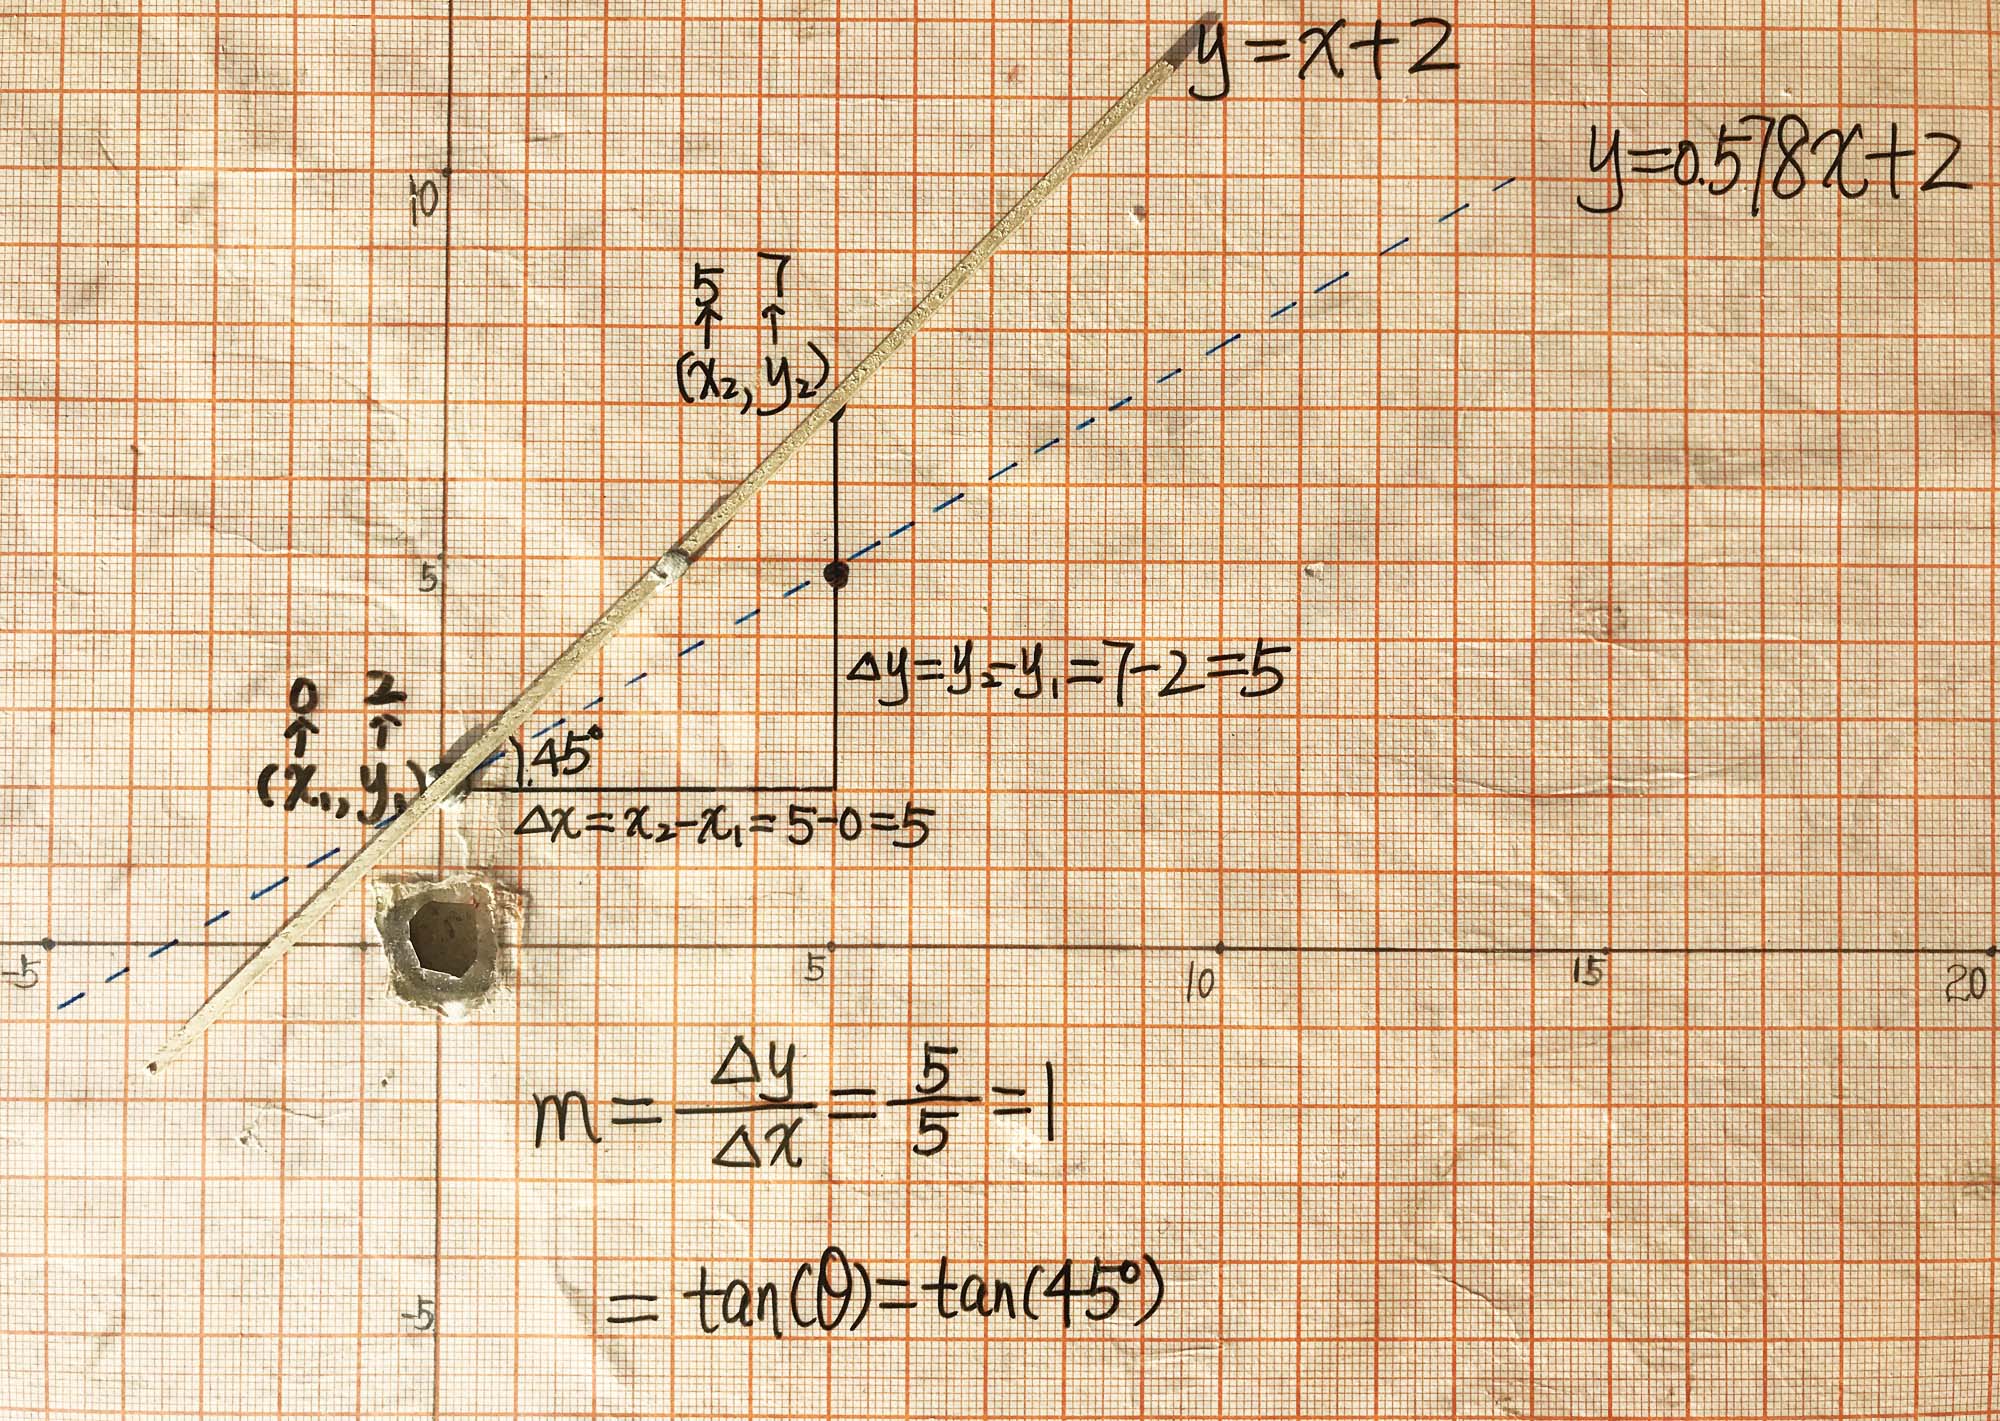 y=x+2
y=0.578x+2
10
5 7
↑ ↑
(x₂, y₂)
5
Δy=y₂-y₁=7-2=5
0 2
↑ ↑
(x₁, y₁)
45°
Δx=x₂-x₁=5-0=5
-5 5 10 15 20
m=Δy/Δx=5/5=1
=tan(θ)=tan(45°)
-5